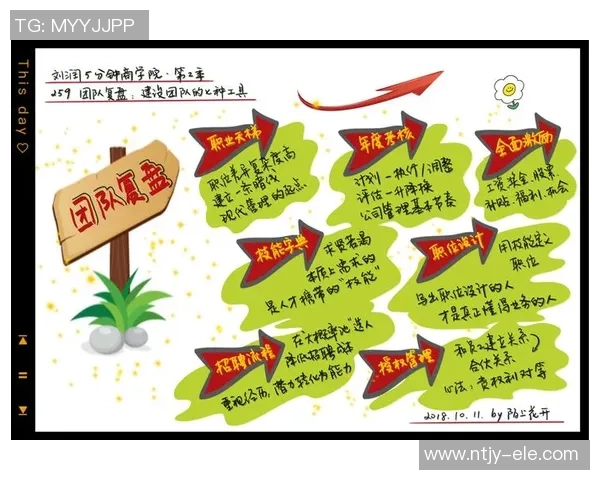 TG: MYYJJPP
This day
刘润5分钟商学院·第2季
259 团队复盘：建设团队的七种工具
团队复盘
职业天梯
职位差异复杂度高
建立一条暗线
现代管理的起点
年度考核
计划-执行/调整
评估-升降换
公司管理基本节奏
全面激励
工资奖金股票
补贴、福利、机会
技能宝典
求贤若渴
本质上需求的
是人才携带的"技能"
职位设计
用技能定义
职位
写出职位设计的人
才是真正懂得业务的人
招聘流程
在大概率池"选人
降低招聘成本
重视经历，潜力转化为能力
授权管理
和员工建立关系
合伙关系
心法，责权利对等
2018.10.11. by 陌上花开
www.ntjy-ele.com